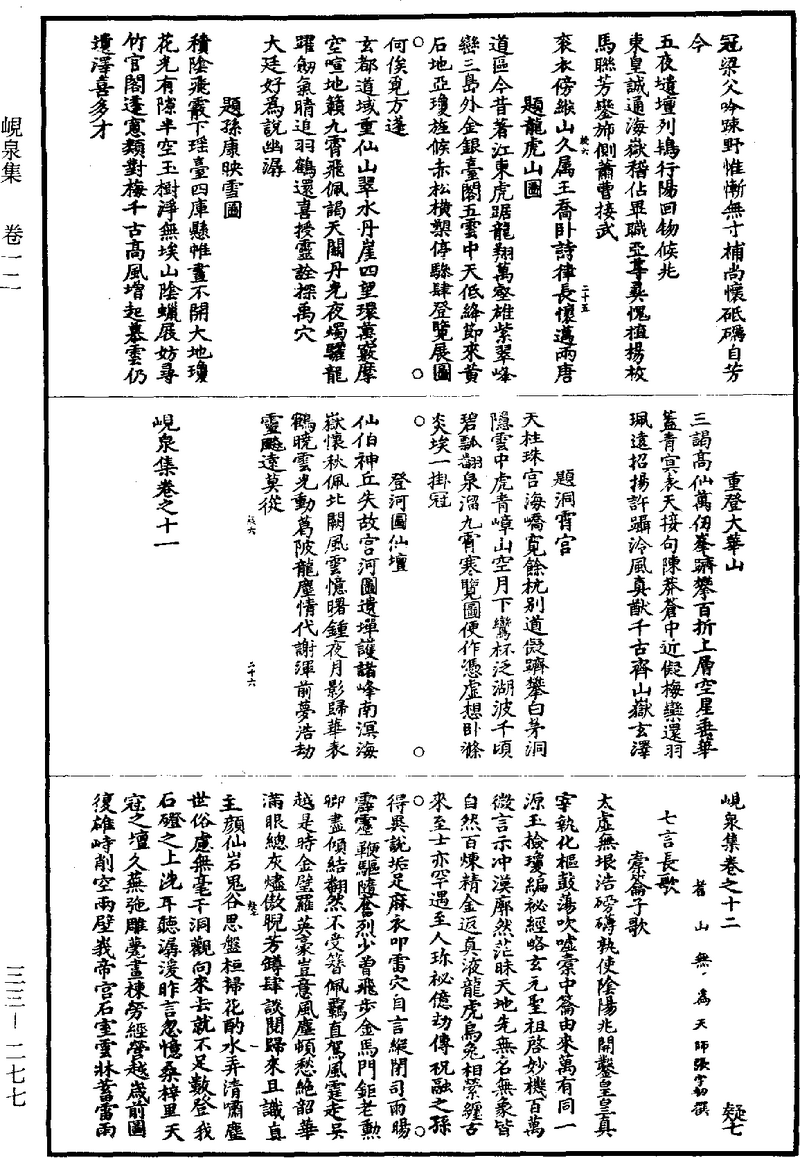 冠梁父吟踈野惟慚無寸補尚懷砥礪自芳
今
五夜壝壇列鵷行陽回钖候兆
東皇誠通海嶽稽佔畢職亞尊彝愧植楊枚
馬聯芳鑾旆側蕭曹接武
衮衣傍緱山久屬王喬卧詩律長懷邁兩唐
題龍虎山圖
道區今昔著江東虎踞龍翔萬壑雄紫翠峰
巒三島外金銀臺閣五雲中天低絳節來黃
石地亞瓊旌候赤松橫槊停驂肆登覽展圖
何俟覓方蓬
玄都道域重仙山翠水丹崖四望環萬竅摩
空喧地籟九霄飛佩謁天關丹光夜燭騰龍
躍劒氣晴追羽鶴還喜授靈詮探禹穴
大廷好為說幽潺
題孫康映雪圖
積陰飛霰下瑶臺四庫懸帷晝不開大地瓊
花光有隙半空玉樹淨無埃山陰蠟屐妨尋
竹官閣蓬窻類對梅千古高風增起慕雲仍
遺澤喜多才
重登大華山
三謁高仙萬仭峯躋攀百折上層空星垂華
蓋青冥表天接句陳莽蒼中近儗梅欒還羽
珮遠招揚許躡泠風真猷千古齊山嶽玄澤
題洞霄宮
天柱珠宮海嶠寬餘杭别道儗躋攀白茅洞
隱雲中虎青嶂山空月下鸞杯泛湖波千頃
碧瓢翻泉溜九霄寒覽圖便作憑虛想卧滌
炎埃一掛冠
登河圖仙壇
仙伯神丘失故宮河圖遺墠護諸峰南溟海
嶽懷秋佩北闕風雲憶曙鍾夜月影歸華表
鶴曉雲光動葛陂龍塵情代謝渾前夢浩劫
靈飈遠莫從
峴泉集卷之十一
峴泉集卷之十二
疑七
耆山無為天師張宇初撰
七言長歌
橐籥子歌
太虛無垠浩磅礴孰使陰陽兆開鑿皇皇真
宰執化樞鼓蕩吹噓橐中籥由來萬有同一
源玉撿瓊編祕經略玄元聖祖啓妙機百萬
微言示冲漠廓然茫昧天地先無名無象皆
自然百煉精金返真液龍虎烏兔相縈纏古
來至士亦罕遇至人珎祕億劫傳祝融之孫
得吳說垢足麻衣叩雷穴自言縱閉司雨暘
霹靂鞭驅隨奮烈少曽飛步金馬門鉅老勲
卿盡傾結翻然不受簪佩羈直駕風霆走吳
越是時金璧羅英豪豈意風塵頓愁絶韶華
滿眼總灰燼傲睨芳罇肆談閱歸來且識直
主顔仙岩鬼谷思盤桓掃花酌水弄清嘯塵
世俗慮無毫干洞觀向來去就不足數登我
石磴之上洗耳聽潺湲昨言忽憶桑梓里天
冦之壇久蕪弛雕甍畫棟勞經營越歲前圖
復雄峙削空兩壁峩帝宮石室雲牀蓄雷雨
峴泉集 卷一二
三三—二七七